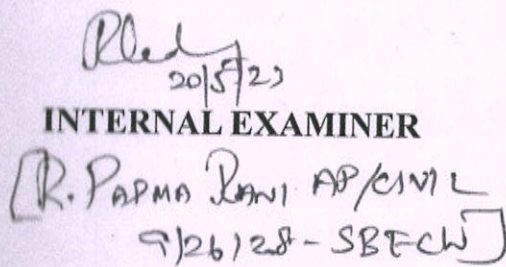 20/5/23
INTERNAL EXAMINER
[R. PADMA RANI AP/CIVIL
9126128 - SBECW]